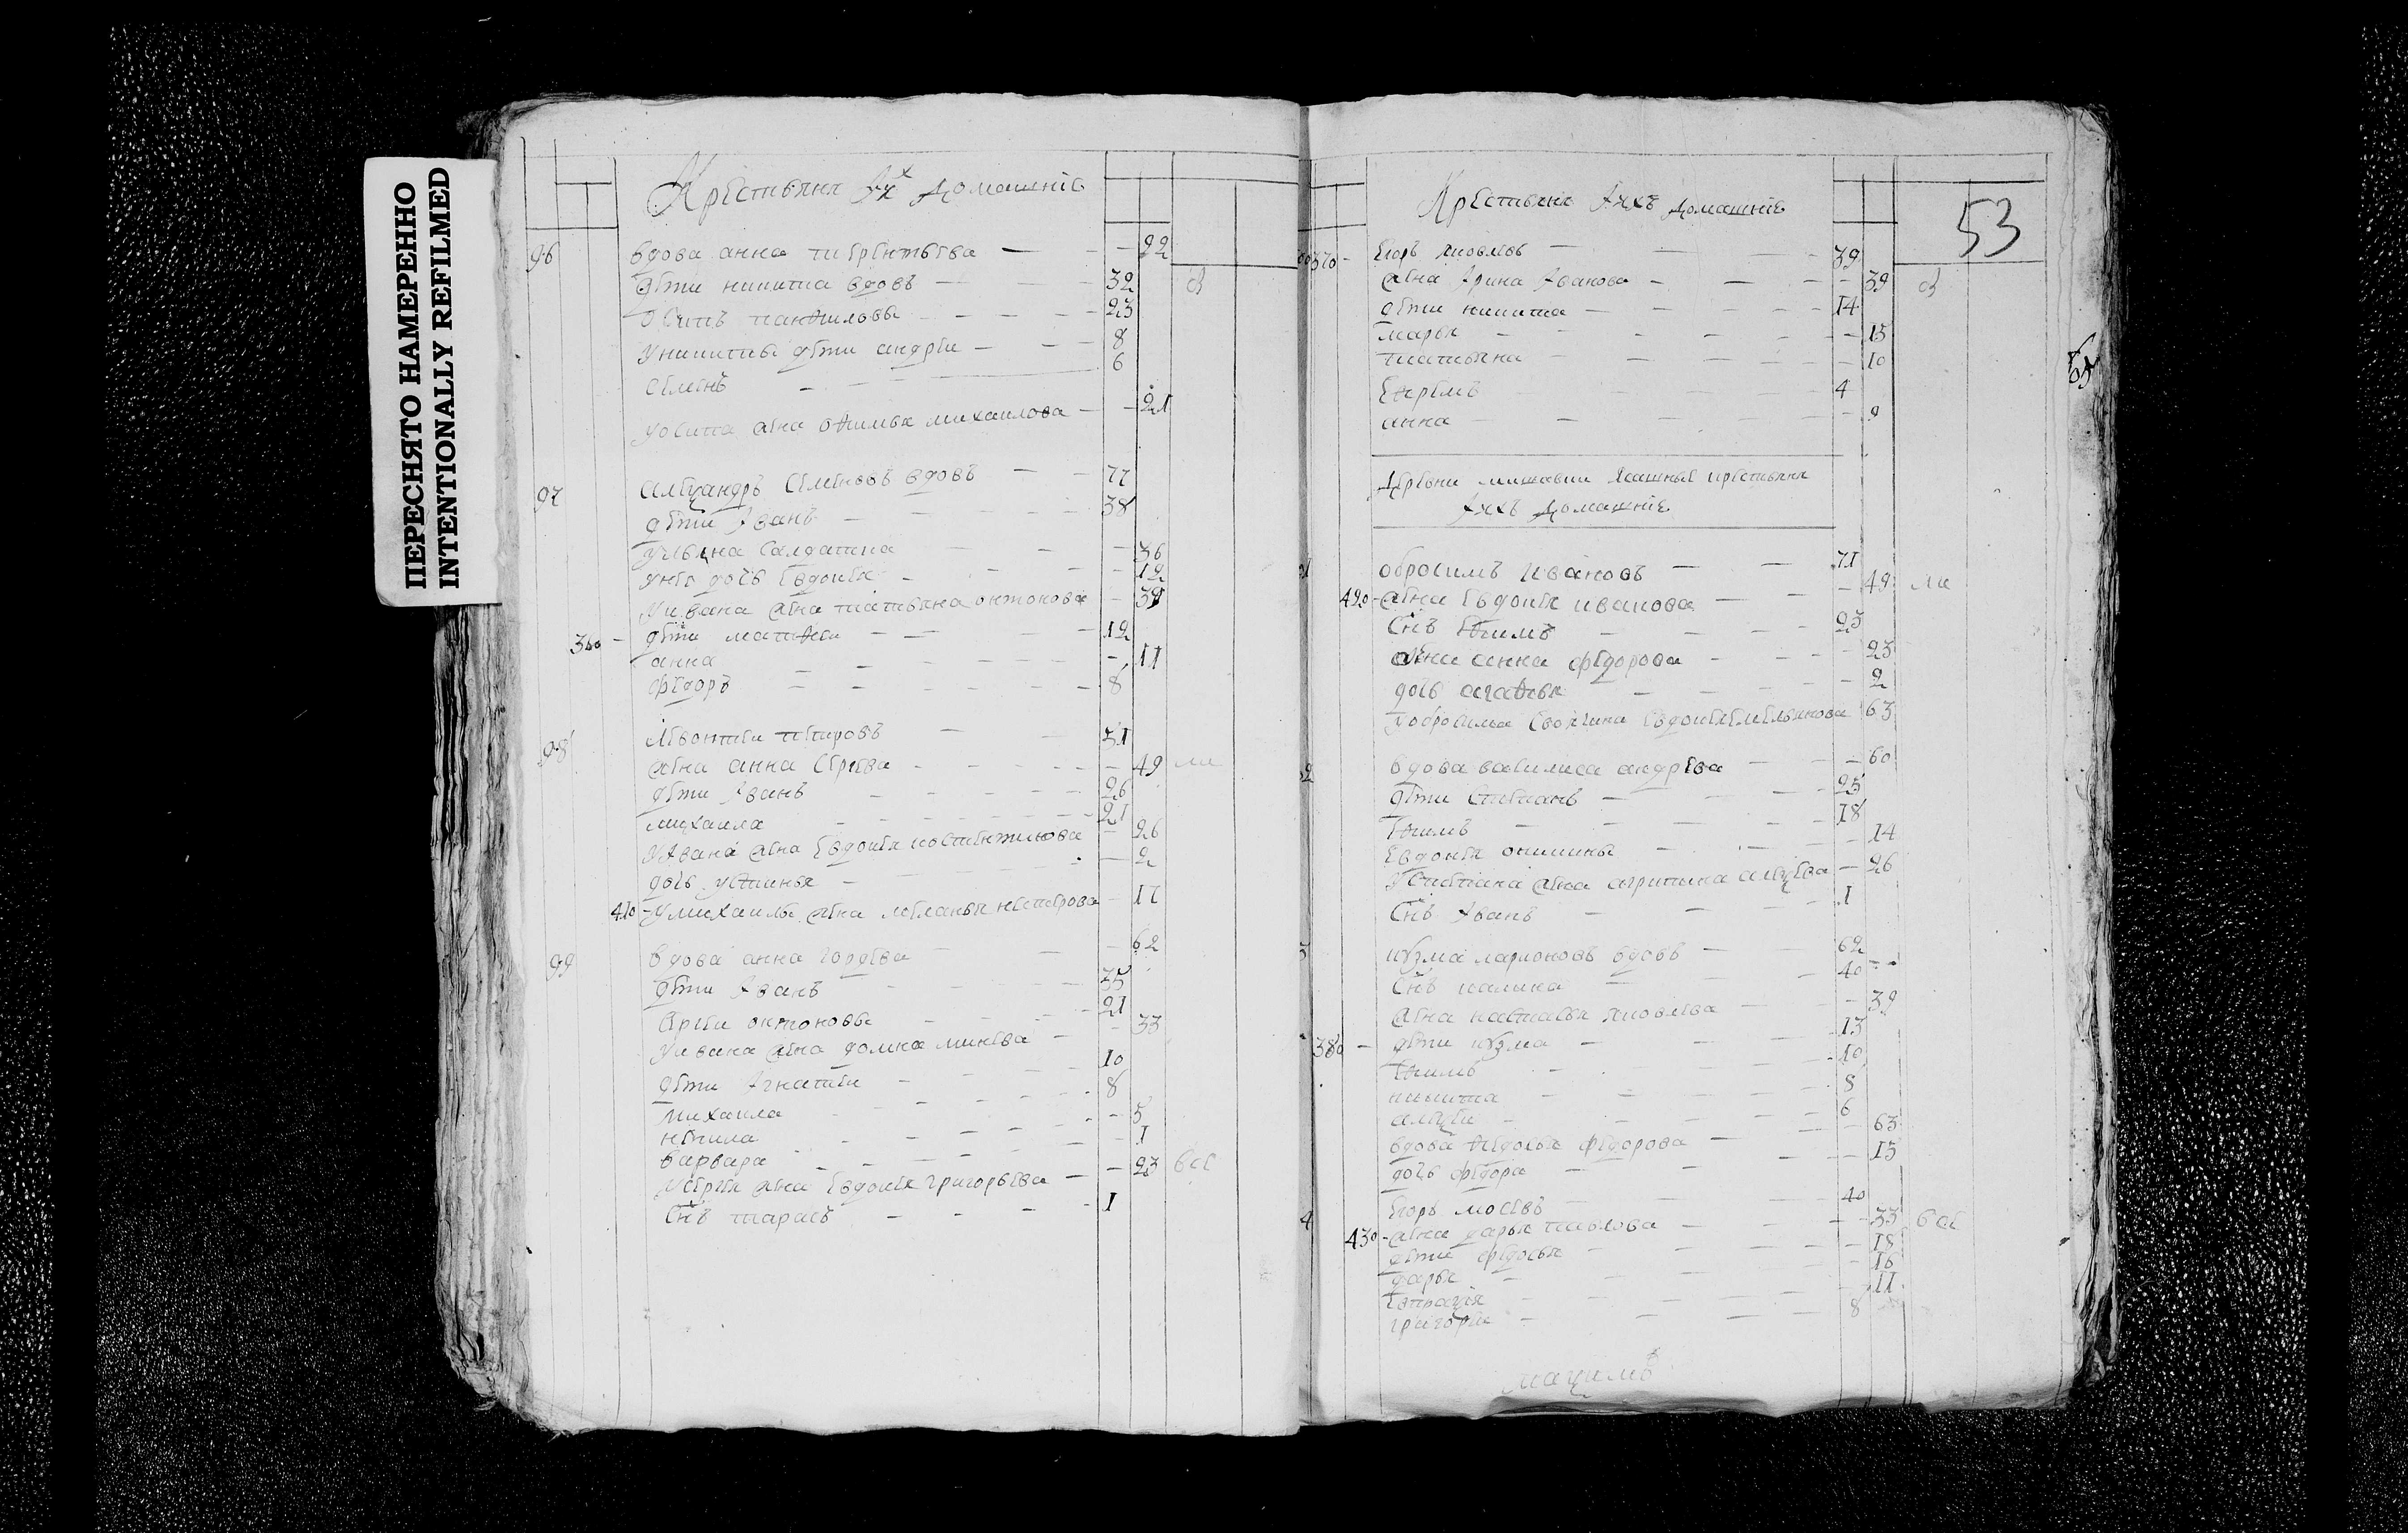 ПЕРЕСНЯТО НАМЕРЕННО
INTENTIONALLY REFILMED
Крестьяня Ихъ домашніе
96 вдова анна терентьева — 22
дѣти никита вдовъ — 32
Осипъ панѳиловы — 23
Уникиты дѣти андреи — 8
семенъ — 6
Уосипа жена оѳимья михаилова — 21
97 алеѯандръ семеновъ вдовъ — 77
дѣти Iванъ — 38
салдатка — 36
унее дочь евдокея — 12
Уивана жена татьяна онтонова — 39
дѣти матвеи — 12
анна — 11
ѳедоръ — 8
98 левонтеи петровъ — 51
жена анна сергева — 49
дѣти Iванъ — 26
михаила — 21
УIвана жена евдокея костентинова — 26
дочь устинья — 2
410 Умихаилы жена маланья нестерова — 17
99 вдова анна гордева — 62
дѣти Iванъ — 35
сергеи онтоновы — 21
Уивана жена домна минева — 33
дѣти Iгнатеи — 10
михаила — 8
ненила — 5
варвара — 1
Усергея жена евдокея григорьева — 23
Снъ тарасъ — 1
Крестьяня Ихъ домашніе
53
370 егоръ яковлевъ — 39
жена Iрина Iванова — 39
дѣти никита — 14
марья — 15
татьяна — 10
еѳремъ — 4
анна — 9
деревни ясашныя крестьяня
Ихъ домашніе
обросимъ ивановъ — 71
420 жена евдокея иванова — 49
Снъ еѳимъ — 23
жена анна ѳедорова — 23
дочь агаѳья — 2
Уобросима своячина евдокея емельянова 63
вдова василиса андрева — 60
дѣти степанъ — 25
еѳимъ — 18
евдокея — 14
Устепана жена агрипина алеѯева — 26
Снъ Iванъ — 1
3 кузма ларионовъ вдовъ — 62
Снъ калина — 40
жена настасья яковлева — 39
380 дѣти кузма — 13
еѳимъ — 10
никита — 8
алеѯеи — 6
вдова ѳедосья ѳедорова — 63
дочь ѳедора — 15
4 егоръ 40
430 жена дарья павлова — 33
дѣти ѳедосья — 18
дарья — 16
епраѯия — 11
григореи — 8
маѯимъ